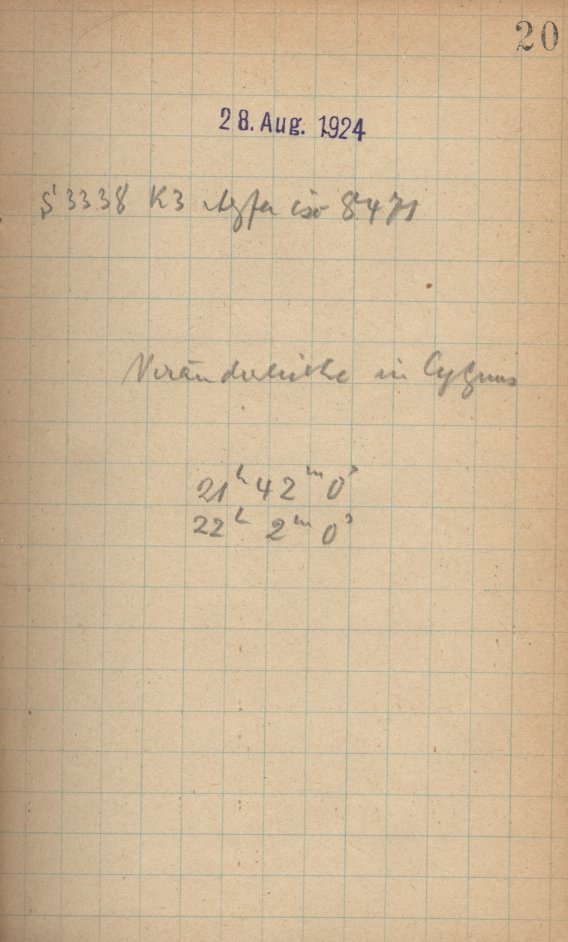 20
28. Aug. 1924
S 3338 K3 Agfa iso 8471
Veränderliche in Cygnus
21h 42m 0s
22h 2m 0s